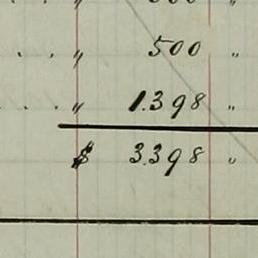 . . " 500 "
. . . " 1.398 "
$ 3.398 "